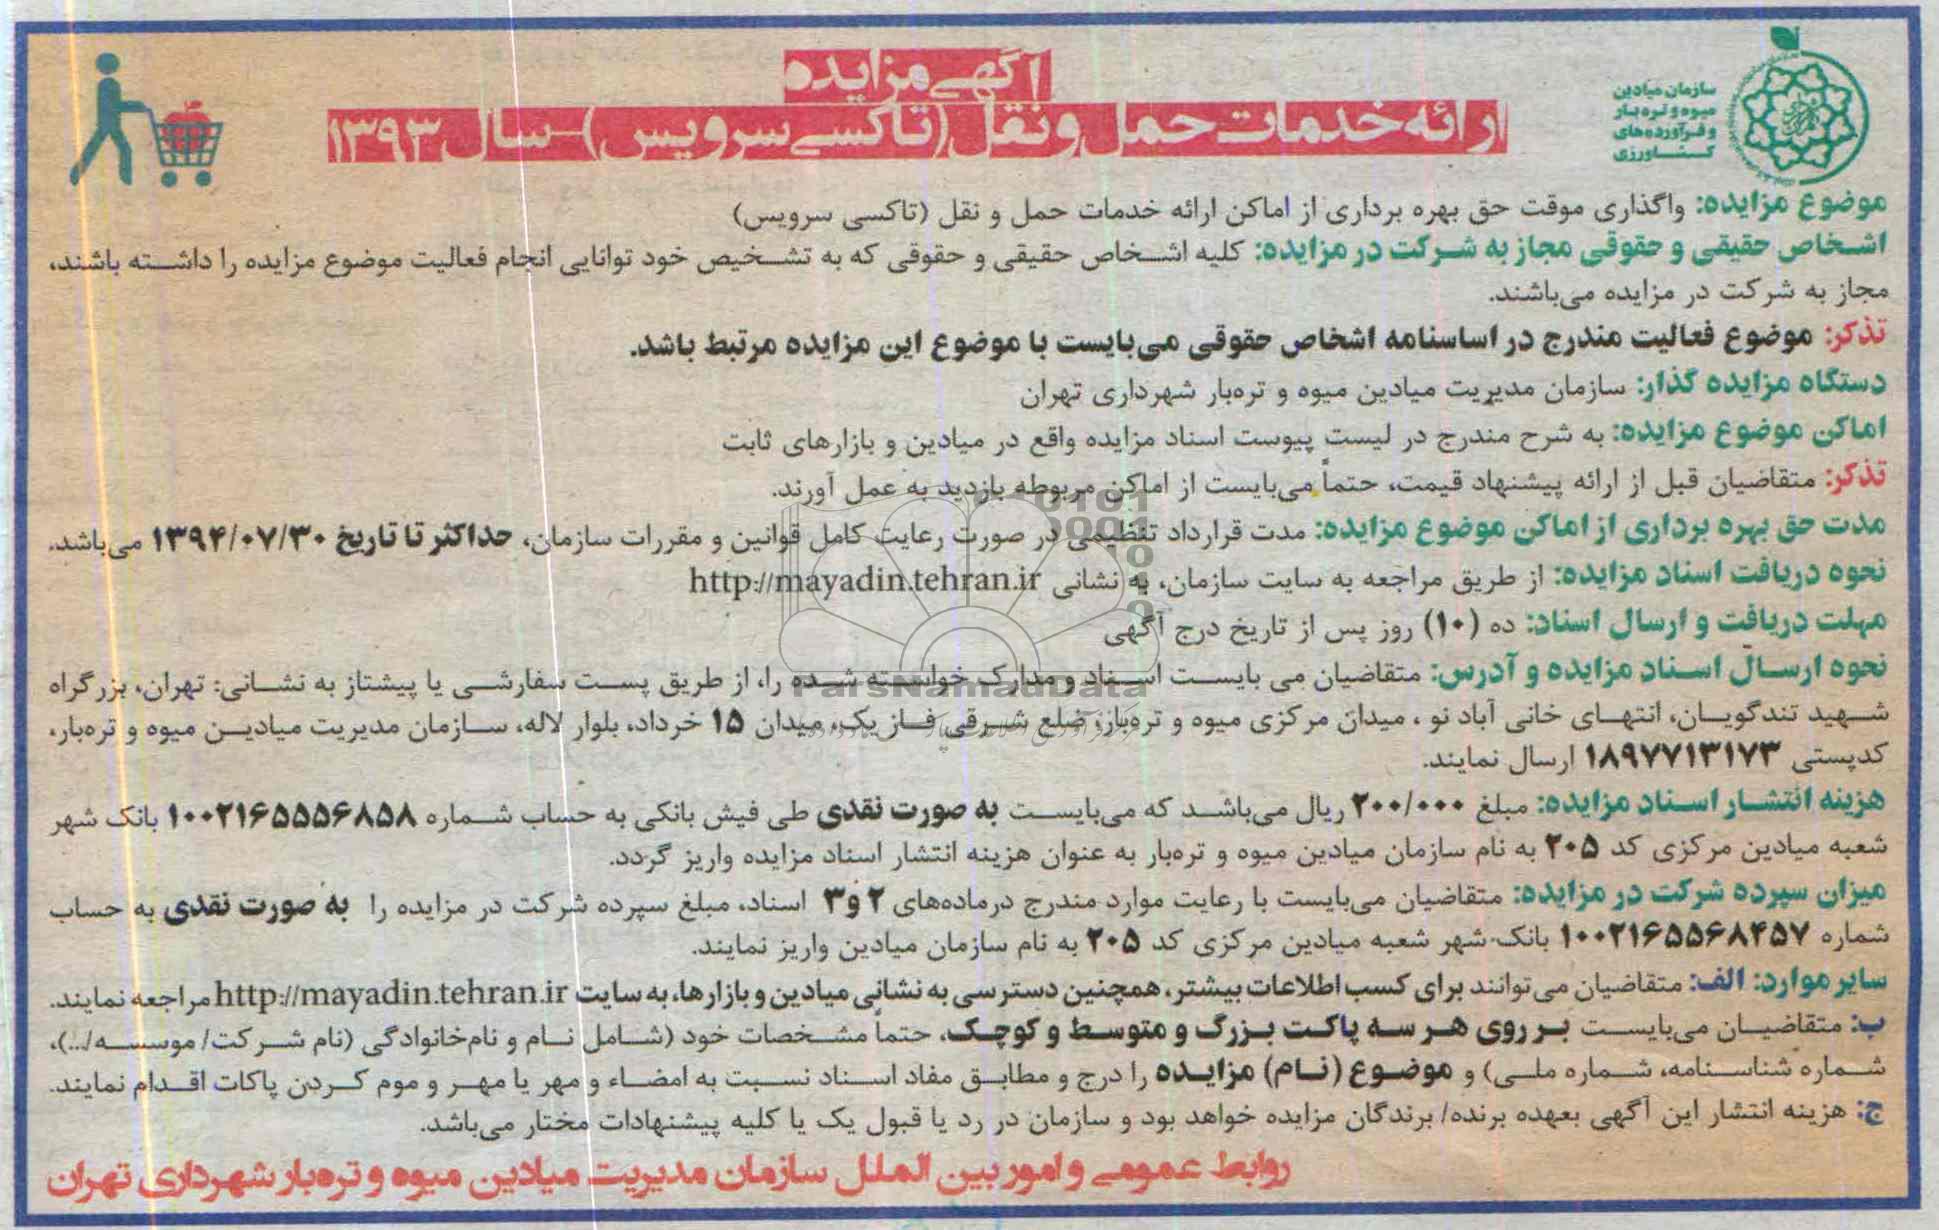 سازمان میادین
میوه و تره‌بار
و فرآورده‌های
کشاورزی
آگهی مزایده
ارائه خدمات حمل و نقل (تاکسی سرویس)-سال ۱۳۹۳
موضوع مزایده: واگذاری موقت حق بهره برداری از اماکن ارائه خدمات حمل و نقل (تاکسی سرویس)
اشخاص حقیقی و حقوقی مجاز به شرکت در مزایده: کلیه اشخاص حقیقی و حقوقی که به تشخیص خود توانایی انجام فعالیت موضوع مزایده را داشته باشند،
مجاز به شرکت در مزایده می‌باشند.
تذکر: موضوع فعالیت مندرج در اساسنامه اشخاص حقوقی می‌بایست با موضوع این مزایده مرتبط باشد.
دستگاه مزایده گذار: سازمان مدیریت میادین میوه و تره‌بار شهرداری تهران
اماکن موضوع مزایده: به شرح مندرج در لیست پیوست اسناد مزایده واقع در میادین و بازارهای ثابت
تذکر: متقاضیان قبل از ارائه پیشنهاد قیمت، حتماً می‌بایست از اماکن مربوطه بازدید به عمل آورند.
مدت حق بهره برداری از اماکن موضوع مزایده: مدت قرارداد تنظیمی در صورت رعایت کامل قوانین و مقررات سازمان، حداکثر تا تاریخ ۱۳۹۴/۰۷/۳۰ می‌باشد.
نحوه دریافت اسناد مزایده: از طریق مراجعه به سایت سازمان، به نشانی http://mayadin.tehran.ir
مهلت دریافت و ارسال اسناد: ده (۱۰) روز پس از تاریخ درج آگهی
نحوه ارسال اسناد مزایده و آدرس: متقاضیان می بایست اسناد و مدارک خواسته شده را، از طریق پست سفارشی یا پیشتاز به نشانی: تهران، بزرگراه
ParsNamadData
شهید تندگویان، انتهای خانی آباد نو ، میدان مرکزی میوه و تره‌بار، ضلع شرقی فاز یک، میدان ۱۵ خرداد، بلوار لاله، سازمان مدیریت میادین میوه و تره‌بار،
کدپستی ۱۸۹۷۷۱۳۱۷۳ ارسال نمایند.
هزینه انتشار اسناد مزایده: مبلغ ۲۰۰/۰۰۰ ریال می‌باشد که می‌بایست به صورت نقدی طی فیش بانکی به حساب شماره ۱۰۰۲۱۶۵۵۵۶۸۵۸ بانک شهر
شعبه میادین مرکزی کد ۲۰۵ به نام سازمان میادین میوه و تره‌بار به عنوان هزینه انتشار اسناد مزایده واریز گردد.
میزان سپرده شرکت در مزایده: متقاضیان می‌بایست با رعایت موارد مندرج درماده‌های ۲ و ۳ اسناد، مبلغ سپرده شرکت در مزایده را به صورت نقدی به حساب
شماره ۱۰۰۲۱۶۵۵۶۸۴۵۷ بانک شهر شعبه میادین مرکزی کد ۲۰۵ به نام سازمان میادین واریز نمایند.
سایر موارد: الف: متقاضیان می‌توانند برای کسب اطلاعات بیشتر، همچنین دسترسی به نشانی میادین و بازارها، به سایت http://mayadin.tehran.ir مراجعه نمایند.
ب: متقاضیان می‌بایست بر روی هر سه پاکت بزرگ و متوسط و کوچک، حتماً مشخصات خود (شامل نام و نام‌خانوادگی (نام شرکت/ موسسه/...)،
شماره شناسنامه، شماره ملی) و موضوع (نام) مزایده را درج و مطابق مفاد اسناد نسبت به امضاء و مهر یا مهر و موم کردن پاکات اقدام نمایند.
ج: هزینه انتشار این آگهی بعهده برنده/ برندگان مزایده خواهد بود و سازمان در رد یا قبول یک یا کلیه پیشنهادات مختار می‌باشد.
روابط عمومی و امور بین الملل سازمان مدیریت میادین میوه و تره‌بار شهرداری تهران